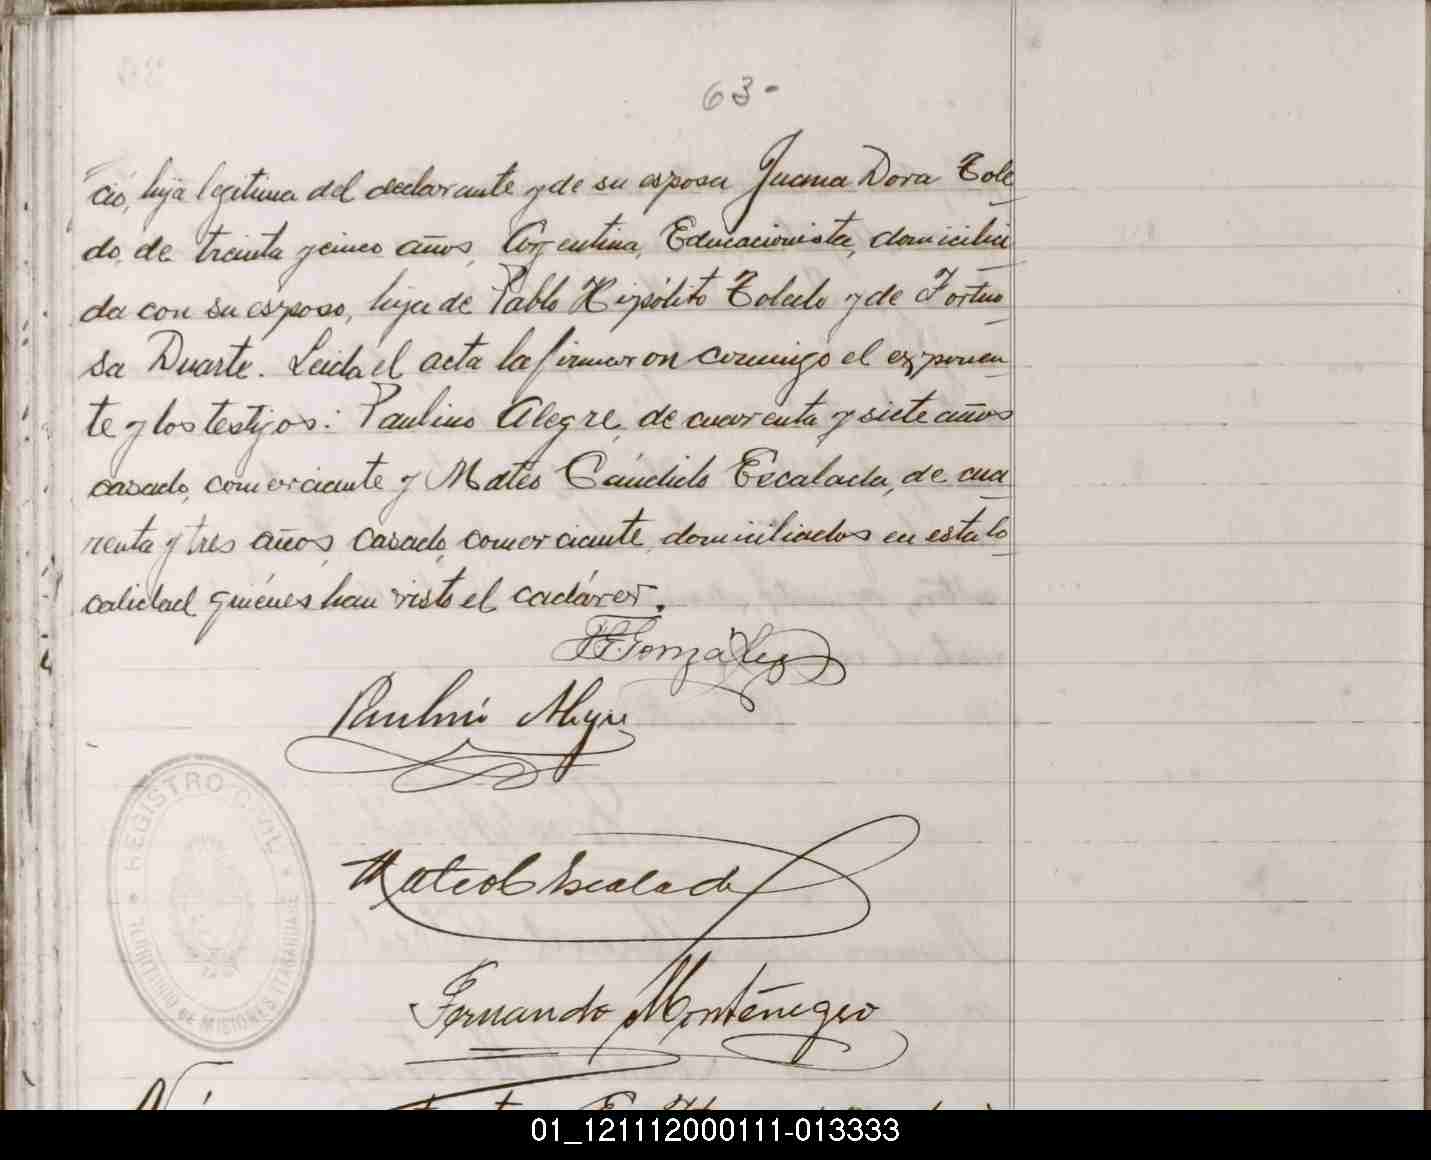 63-
ció, hija legítima del declarante y de su esposa Juana Dora Tole
do, de treinta y cinco años, Argentina, Educacionista, domicilia
da con su esposo, hija de Pablo Hipólito Toledo y de Fortuo
sa Duarte. Leida el acta la firmaron conmigo el exponen
te y los testigos: Paulino Alegre, de cuarenta y siete años
casado, comerciante y Mateo Cándido Escalada, de cua
renta y tres años, casado, comerciante, domiciliados en esta lo
calidad quiénes han visto el cadáver.
González
Paulino Alegre
Mateo C Escalada
Fernando Montenegro
REGISTRO CIVIL
TERRITORIO DE MISIONES
01_121112000111-013333